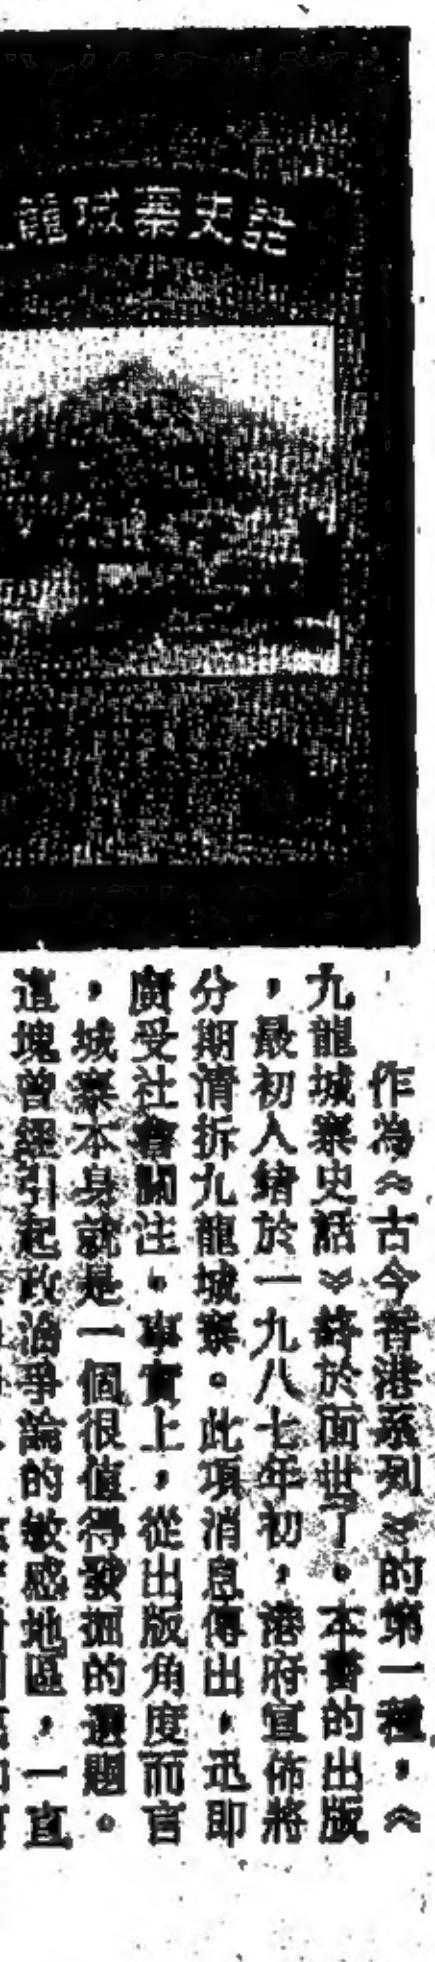 龍城寨史話
作為《古今香港系列》的第一種，《
九龍城寨史話》終於面世了。本書的出版
，最初入緒於一九八七年初，港府宣佈將
分期清拆九龍城寨。此項消息傳出，迅即
廣受社會關注。事實上，從出版角度而言
，城寨本身就是一個很值得發掘的選題。
這塊曾經引起政治爭論的敏感地區，一直